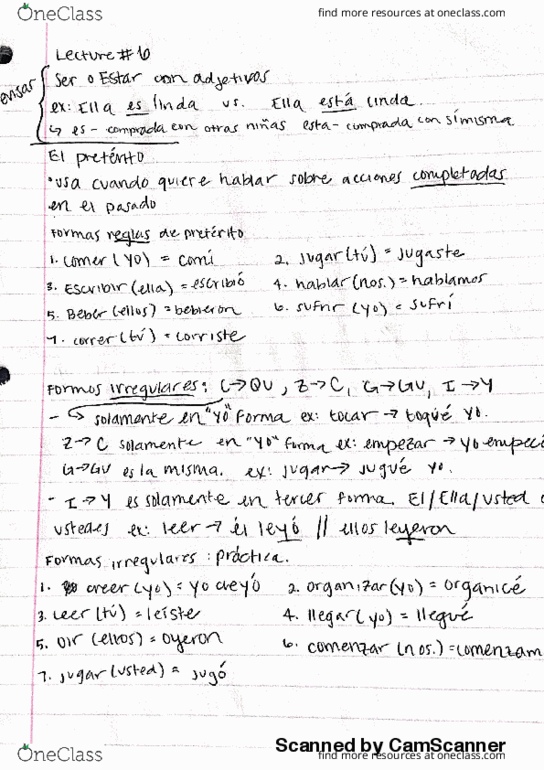 OneClass
find more resources at oneclass.com
Lecture #10
ensar
Ser o Estar con adjetivos
ex: Ella es linda vs. Ella está linda.
↳ es - comprada con otras niñas esta - comprada con símisma
El pretérito
•usa cuando quiere hablar sobre acciones completadas
en el pasado
Formas reglas de pretérito
1. comer (yo) = comí 2. jugar (tú) = jugaste
3. Escribir (ella) = escribió 4. hablar (nos.) = hablamos
5. Beber (ellos) = bebieron 6. sufrir (yo) = sufrí
7. correr (tú) = corriste
Formos irregulares: C→QU, Z→C, G→GU, I→Y
- ↳ solamente en "yo" forma ex: tocar → toqué yo.
Z→C solamente en "yo" forma ex: empezar → yo empecí
G→GU es la misma. ex: jugar → jugué yo.
- I→Y es solamente en tercer forma. El/Ella/usted
ustedes ex: leer → él leyó // ellos leyeron
Formas irregulares: práctica.
1. creer (yo) = yo creyó 2. organizar (yo) = organicé
3. Leer (tú) = leíste 4. llegar (yo) = llegué
5. Oír (ellos) = oyeron 6. comenzar (nos.) = comenzam
7. jugar (usted) = jugó
Scanned by CamScanner
OneClass
find more resources at oneclass.com